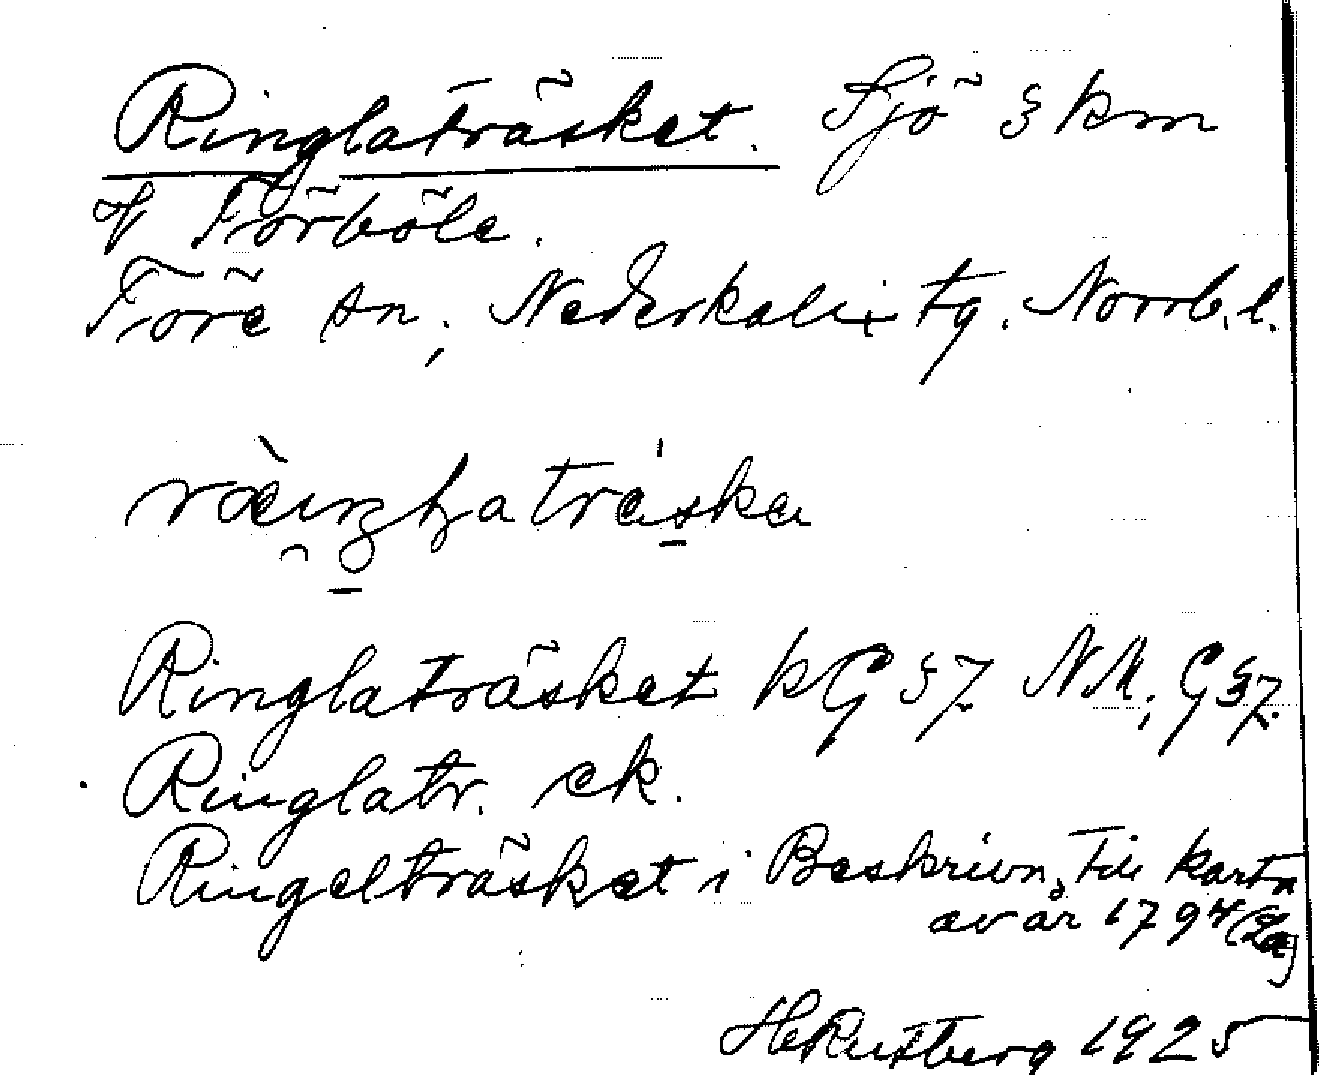 Ringlaträsket. Sjö 3 km
N Törböle.
Töre sn, Nederkalix tg. Norrb. l.
Ringlaträsket kG 37 NM; G37.
Ringlatr. ek.
Ringelträsket i Beskrivn. till karta
av år 1794
H. Rutberg 1925